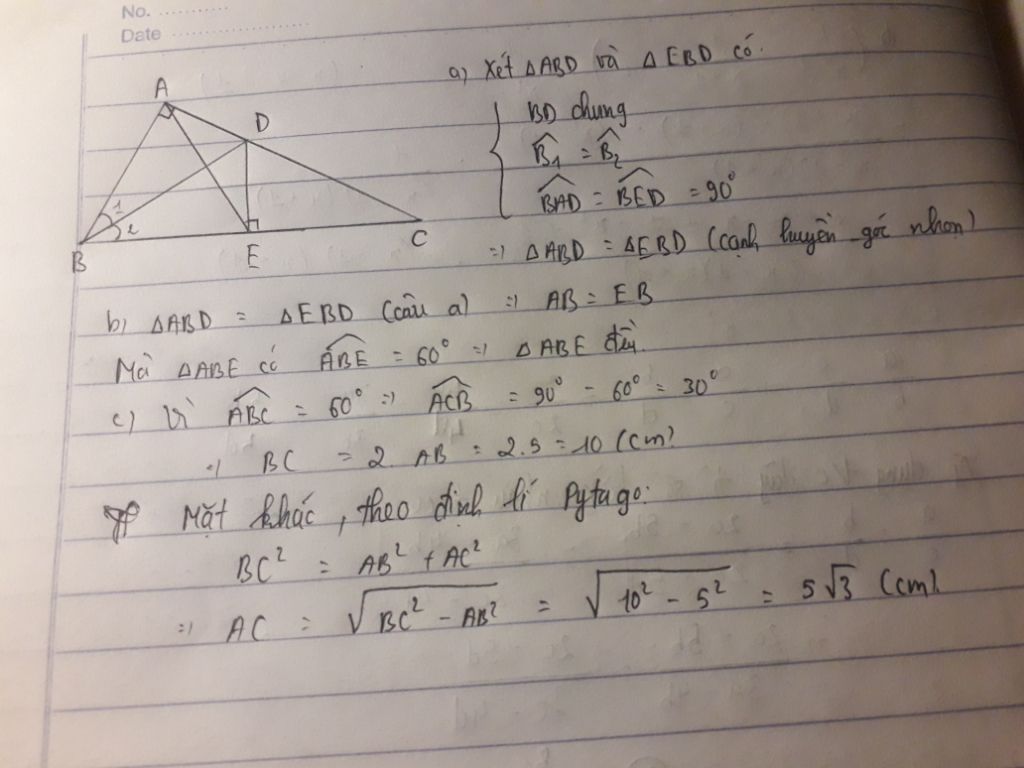 No. ..........
Date ....................
A
D
1
2
B
E
C
a) Xét ΔABD và ΔEBD có.
BD chung
B̂₁ = B̂₂
BAD̂ = BED̂ = 90°
=> ΔABD = ΔEBD (cạnh huyền góc nhọn)
b) ΔABD = ΔEBD (câu a) => AB = EB
Mà ΔABE có ABÊ = 60° => ΔABE đều.
c) Vì ABĈ = 60° => ACB̂ = 90° - 60° = 30°
=> BC = 2. AB = 2.5 = 10 (cm)
Mặt khác, theo định lí Pytago:
BC² = AB² + AC²
=> AC = √(BC² - AB²) = √(10² - 5²) = 5√3 (cm).